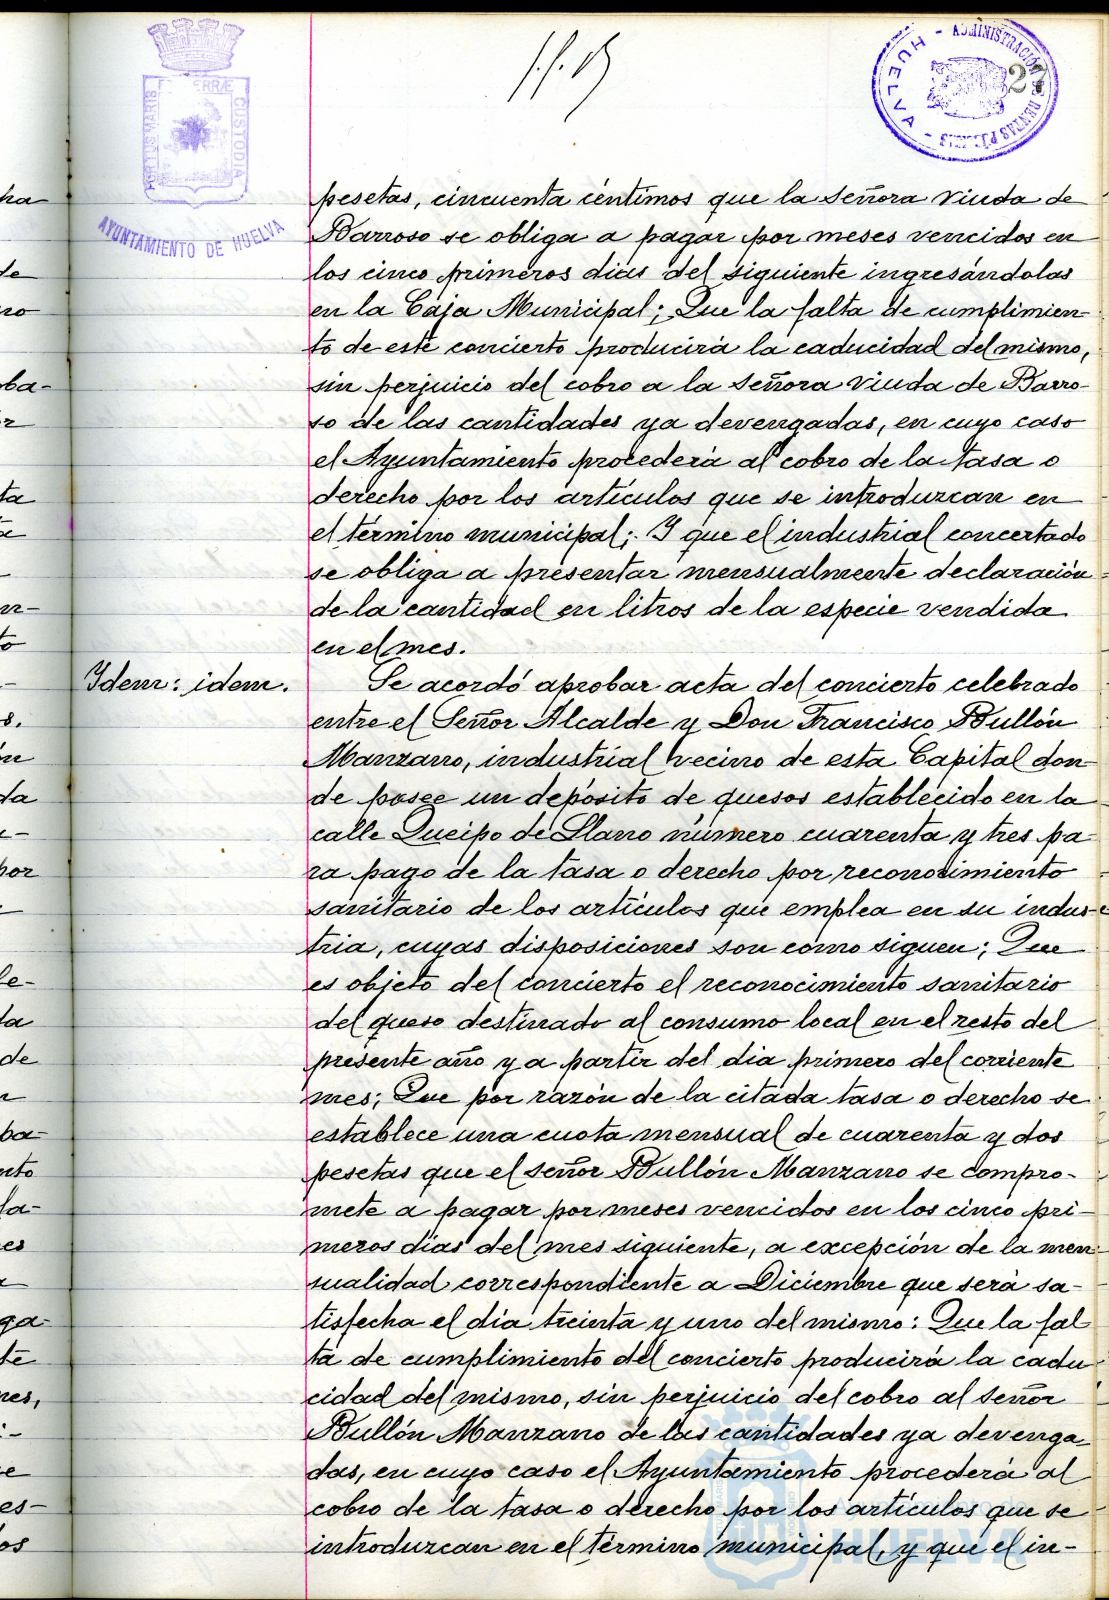 PORTUS MARIS ET TERRÆ CUSTODIA
AYUNTAMIENTO DE HUELVA
ADMINISTRACIÓN DE RENTAS PÚBLICAS - HUELVA -
27
pesetas, cincuenta céntimos que la señora viuda de
Barroso se obliga a pagar por meses vencidos en
los cinco primeros dias del siguiente ingresándolas
en la Caja Municipal; Que la falta de cumplimien-
to de este concierto producirá la caducidad del mismo,
sin perjuicio del cobro a la señora viuda de Barro-
so de las cantidades ya devengadas, en cuyo caso
el Ayuntamiento procederá al cobro de la tasa o
derecho por los artículos que se introduzcan en
el término municipal; Y que el industrial concertado
se obliga a presentar mensualmente declaración
de la cantidad en litros de la especie vendida
en el mes.
Idem: idem.
Se acordó aprobar acta del concierto celebrado
entre el Señor Alcalde y Don Francisco Bullón
Manzano, industrial vecino de esta Capital don-
de posee un depósito de quesos establecido en la
calle Queipo de Llano número cuarenta y tres pa-
ra pago de la tasa o derecho por reconocimiento
sanitario de los artículos que emplea en su indus-
tria, cuyas disposiciones son como siguen; Que
es objeto del concierto el reconocimiento sanitario
del queso destinado al consumo local en el resto del
presente año y a partir del dia primero del corriente
mes; Que por razón de la citada tasa o derecho se
establece una cuota mensual de cuarenta y dos
pesetas que el señor Bullón Manzano se compro-
mete a pagar por meses vencidos en los cinco pri-
meros días del mes siguiente, a excepción de la men-
sualidad correspondiente a Diciembre que será sa-
tisfecha el día treinta y uno del mismo: Que la fal-
ta de cumplimiento del concierto producirá la cadu-
cidad del mismo, sin perjuicio del cobro al señor
Bullón Manzano de las cantidades ya devenga-
das, en cuyo caso el Ayuntamiento procederá al
cobro de la tasa o derecho por los artículos que se
introduzcan en el término municipal, y que el in-
HUELVA